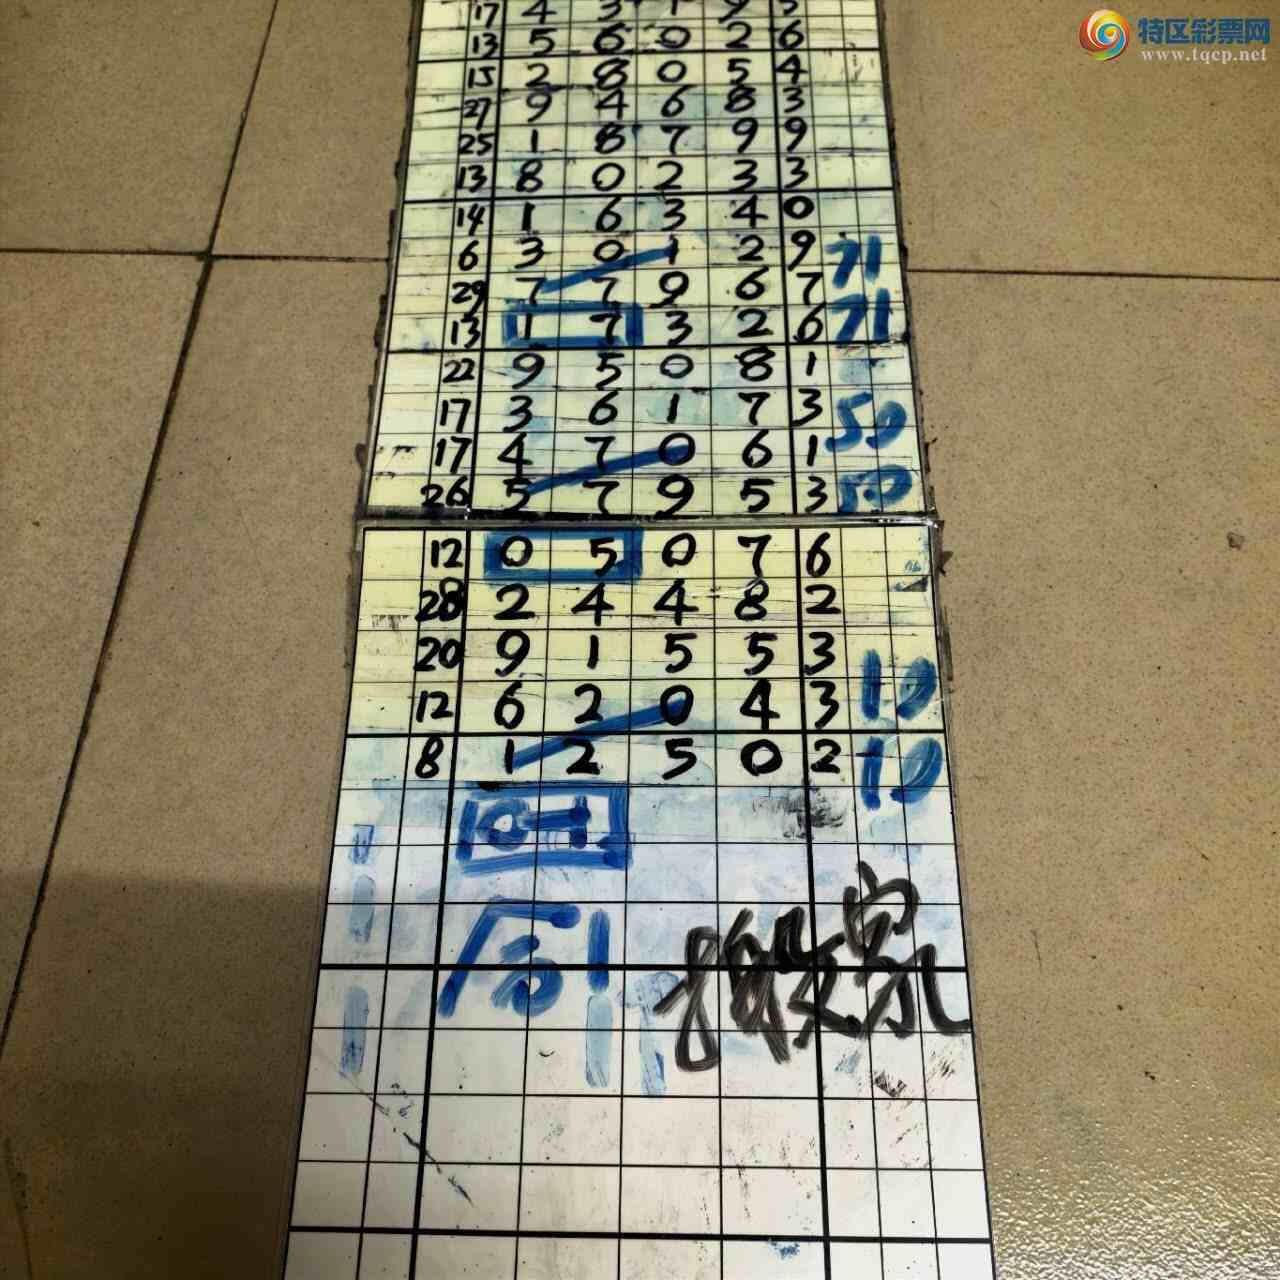 特区彩票网
www.tqcp.net
17 4 3 1 9 5
13 5 6 0 2 6
15 2 8 0 5 4
27 9 4 6 8 3
25 1 8 7 9 9
13 8 0 2 3 3
14 1 6 3 4 0
6 3 0 1 2 9 71
29 7 7 9 6 7
13 1 7 3 2 6 71
22 9 5 0 8 1
17 3 6 1 7 3 50
17 4 7 0 6 1
26 5 7 9 5 3 50
12 0 5 0 7 6
28 2 4 4 8 2
20 9 1 5 5 3 10
12 6 2 0 4 3
8 1 2 5 0 2 10
01
搬家